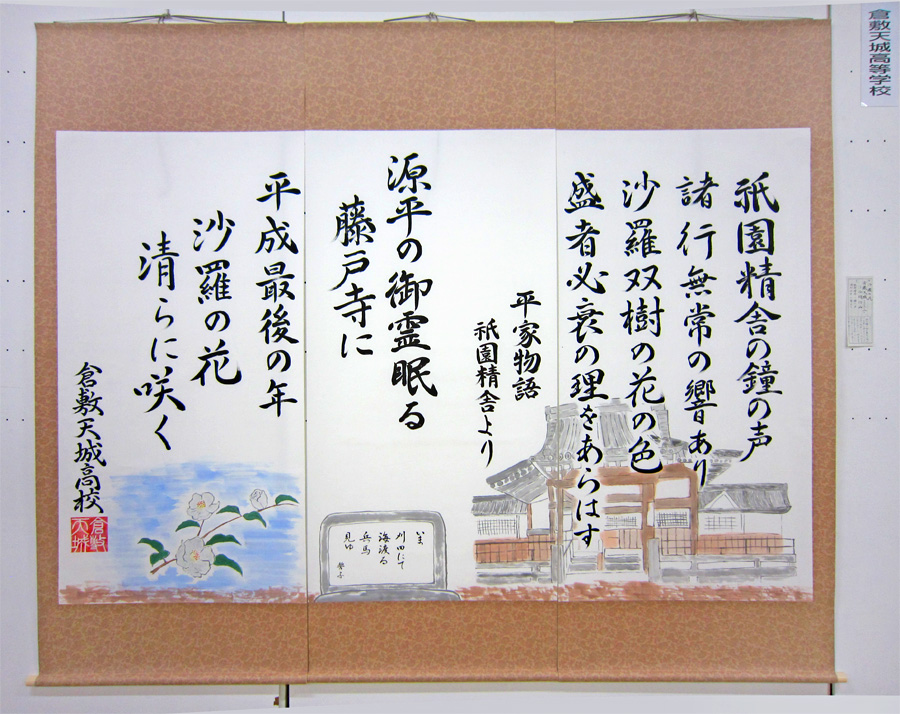 倉敷天城高等学校
祇園精舎の鐘の声
諸行無常の響あり
沙羅双樹の花の色
盛者必衰の理をあらはす
平家物語
祇園精舎より
源平の御霊眠る
藤戸寺に
いま
刈田にて
海渡る
兵馬
見ゆ
平成最後の年
沙羅の花
清らに咲く
倉敷天城高校
倉敷
天城